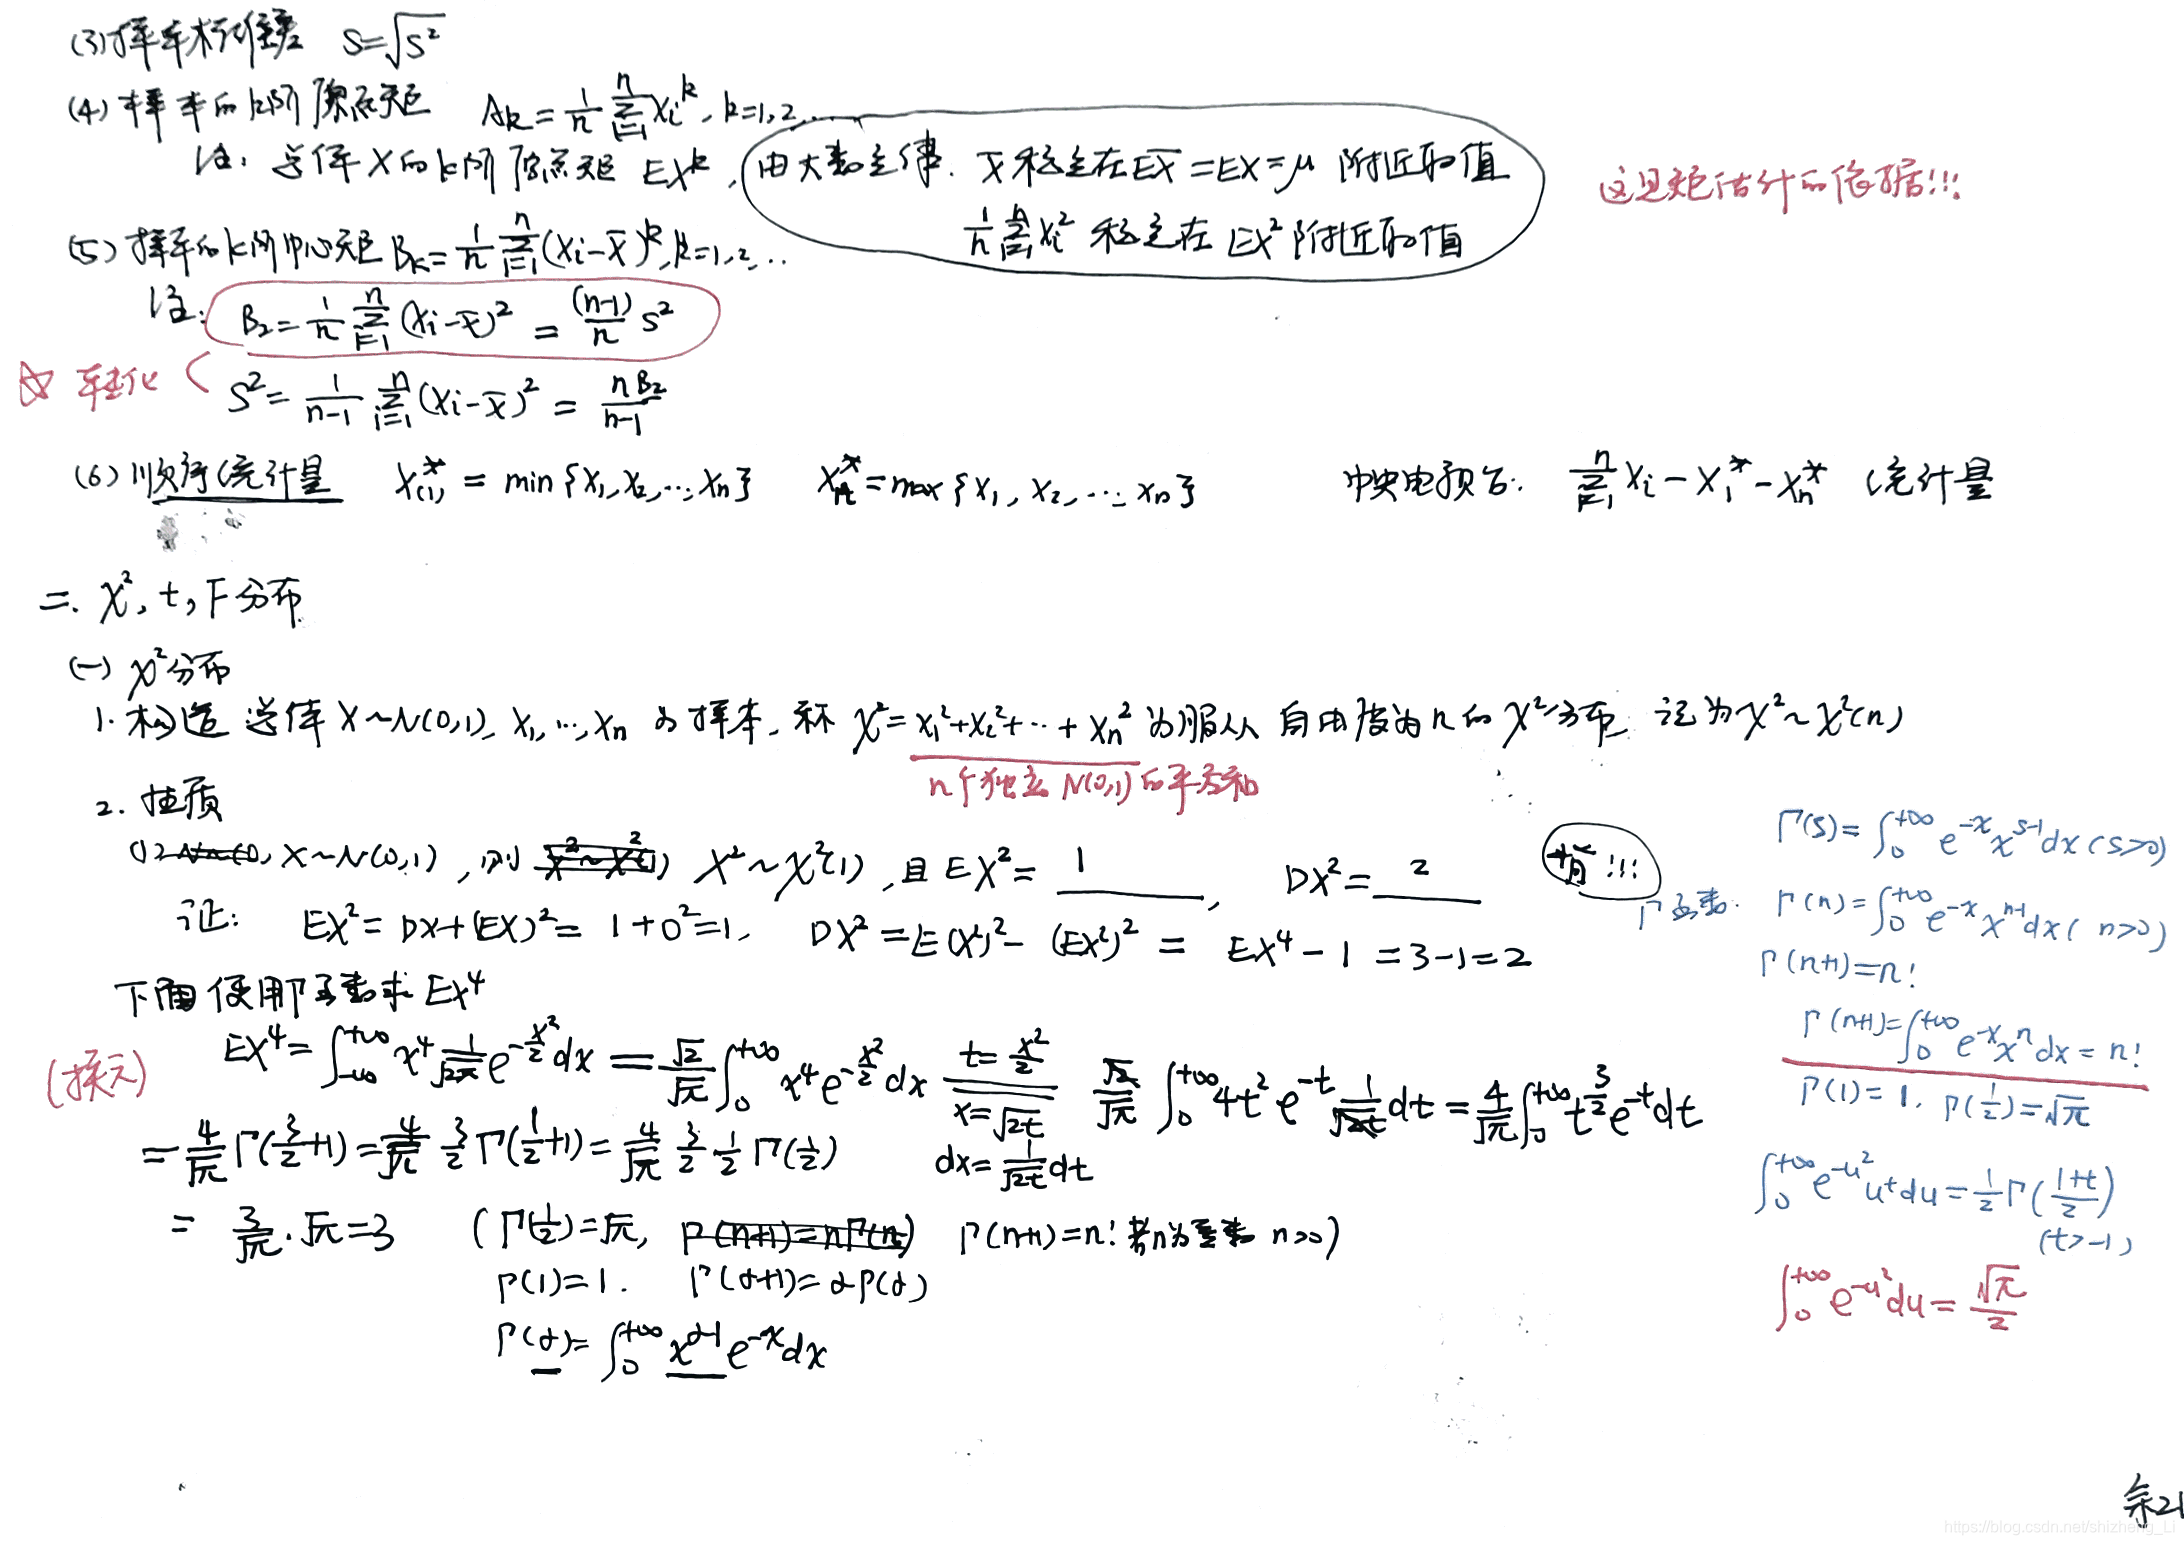 (3) 样本标准差 S=√S²
(4) 样本的k阶原点矩 Aₖ = 1/n ∑ᵢ₌₁ⁿ Xᵢᵏ, k=1,2,...
注: 总体X的k阶原点矩 EXᵏ, 由大数定律. X̄ 稳定在EX̄=EX=μ 附近取值
1/n ∑ᵢ₌₁ⁿ Xᵢ² 稳定在 EX² 附近取值
这是矩估计的依据!!!
(5) 样本的k阶中心矩 Bₖ = 1/n ∑ᵢ₌₁ⁿ (Xᵢ-X̄)ᵏ, k=1,2,...
注: B₂ = 1/n ∑ᵢ₌₁ⁿ (Xᵢ-X̄)² = (n-1)/n S²
☆ 转化
S² = 1/(n-1) ∑ᵢ₌₁ⁿ (Xᵢ-X̄)² = nB₂/(n-1)
(6) 顺序统计量 X₍₁₎* = min{X₁,X₂,...,Xₙ} Xₙ* = max{X₁,X₂,...,Xₙ} 中央电视台: ∑ᵢ₌₁ⁿ Xᵢ - X₁* - Xₙ* 统计量
二. χ², t, F分布
(一) χ²分布
1. 构造 总体X~N(0,1), X₁,...,Xₙ 为样本, 称 χ²=X₁²+X₂²+...+Xₙ² 为服从 自由度为n的χ²分布 记为χ²~χ²(n)
n个独立N(0,1)的平方和
2. 性质
(1) X~N(0,1), 则 X²~χ²(1), 且EX²= 1 , DX²= 2
背!!!
证: EX²=DX+(EX)²=1+0²=1, DX²=E(X²)²-(EX²)² = EX⁴-1 =3-1=2
下面使用Γ函数求EX⁴
(换元)
EX⁴ = ∫₋∞^+∞ x⁴ 1/√2π e^(-x²/2) dx = √2/√π ∫₀^+∞ x⁴ e^(-x²/2) dx t=x²/2 x=√2t dx=1/√2t dt √2/√π ∫₀^+∞ 4t² e^(-t) 1/√2t dt = 4/√π ∫₀^+∞ t^(3/2) e^(-t) dt
= 4/√π Γ(3/2+1) = 4/√π 3/2 Γ(1/2+1) = 4/√π 3/2 · 1/2 Γ(1/2)
= 3/√π · √π = 3 (Γ(1/2)=√π, Γ(n+1)=nΓ(n) Γ(n+1)=n! 若n为整数 n>0)
Γ(1)=1. Γ(α+1)=αΓ(α)
Γ(α) = ∫₀^+∞ x^(α-1) e^(-x) dx
Γ函数.
Γ(s) = ∫₀^+∞ e^(-x) x^(s-1) dx (s>0)
Γ(n) = ∫₀^+∞ e^(-x) x^(n-1) dx (n>0)
Γ(n+1)=n!
Γ(n+1) = ∫₀^+∞ e^(-x) xⁿ dx = n!
Γ(1)=1, Γ(1/2)=√π
∫₀^+∞ e^(-u²) uᵗ du = 1/2 Γ((1+t)/2)
(t>-1)
∫₀^+∞ e^(-u²) du = √π/2
余21
https://blog.csdn.net/shizheng_Li